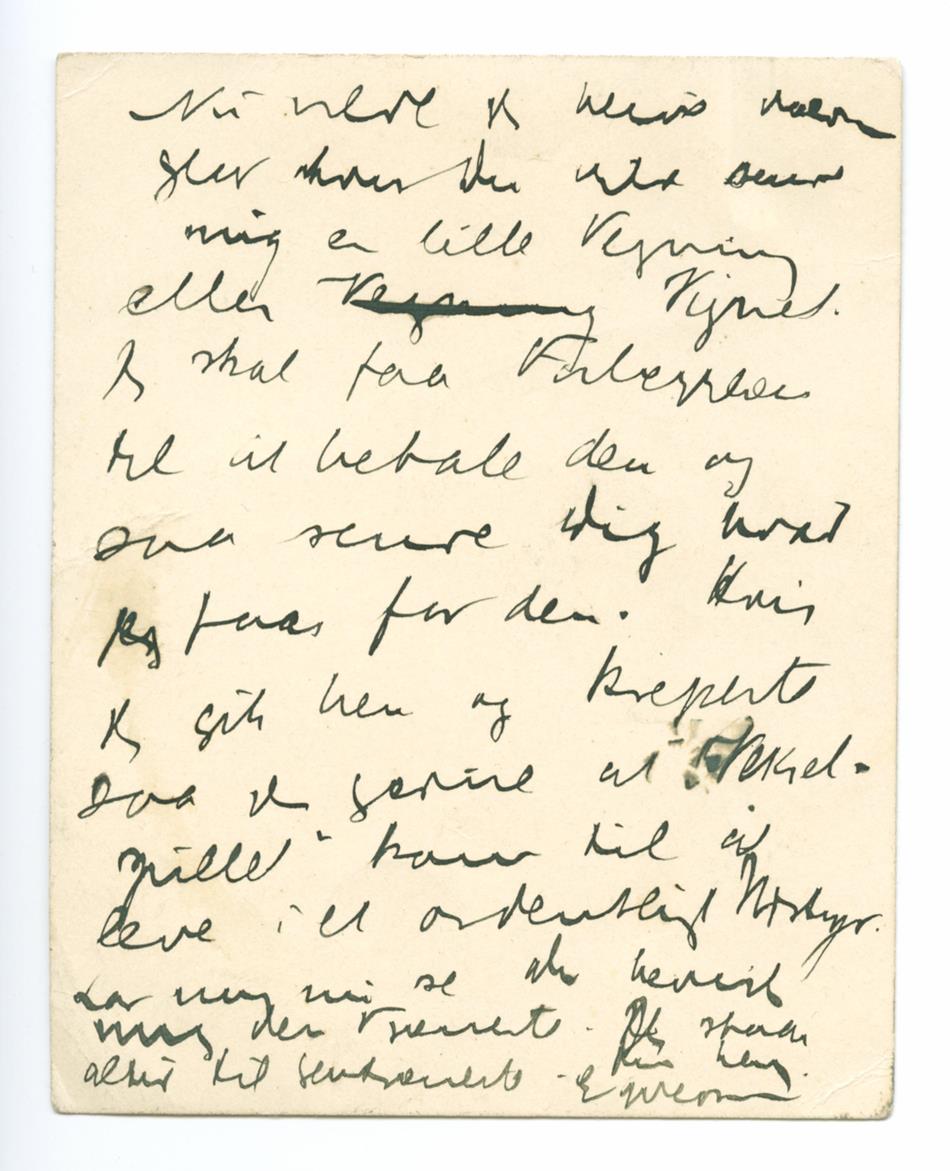 Nu vilde jeg blive meget
glad hvis Du vilde sende
mig en lille Tegning
eller Tegning Vignet.
Jeg skal faa Forlæggeren
til at betale den og
saa sende Dig hvad
jeg faar for den. Hvis
jeg gik hen og kreperte
saa jeg gjerne at "Veksel-
spillet" kom til at
leve i et ordentligt Udstyr.
Lar mig nu se du beviser
mig den Tjeneste. Jeg staar
altid til Gentjeneste. Din hen.